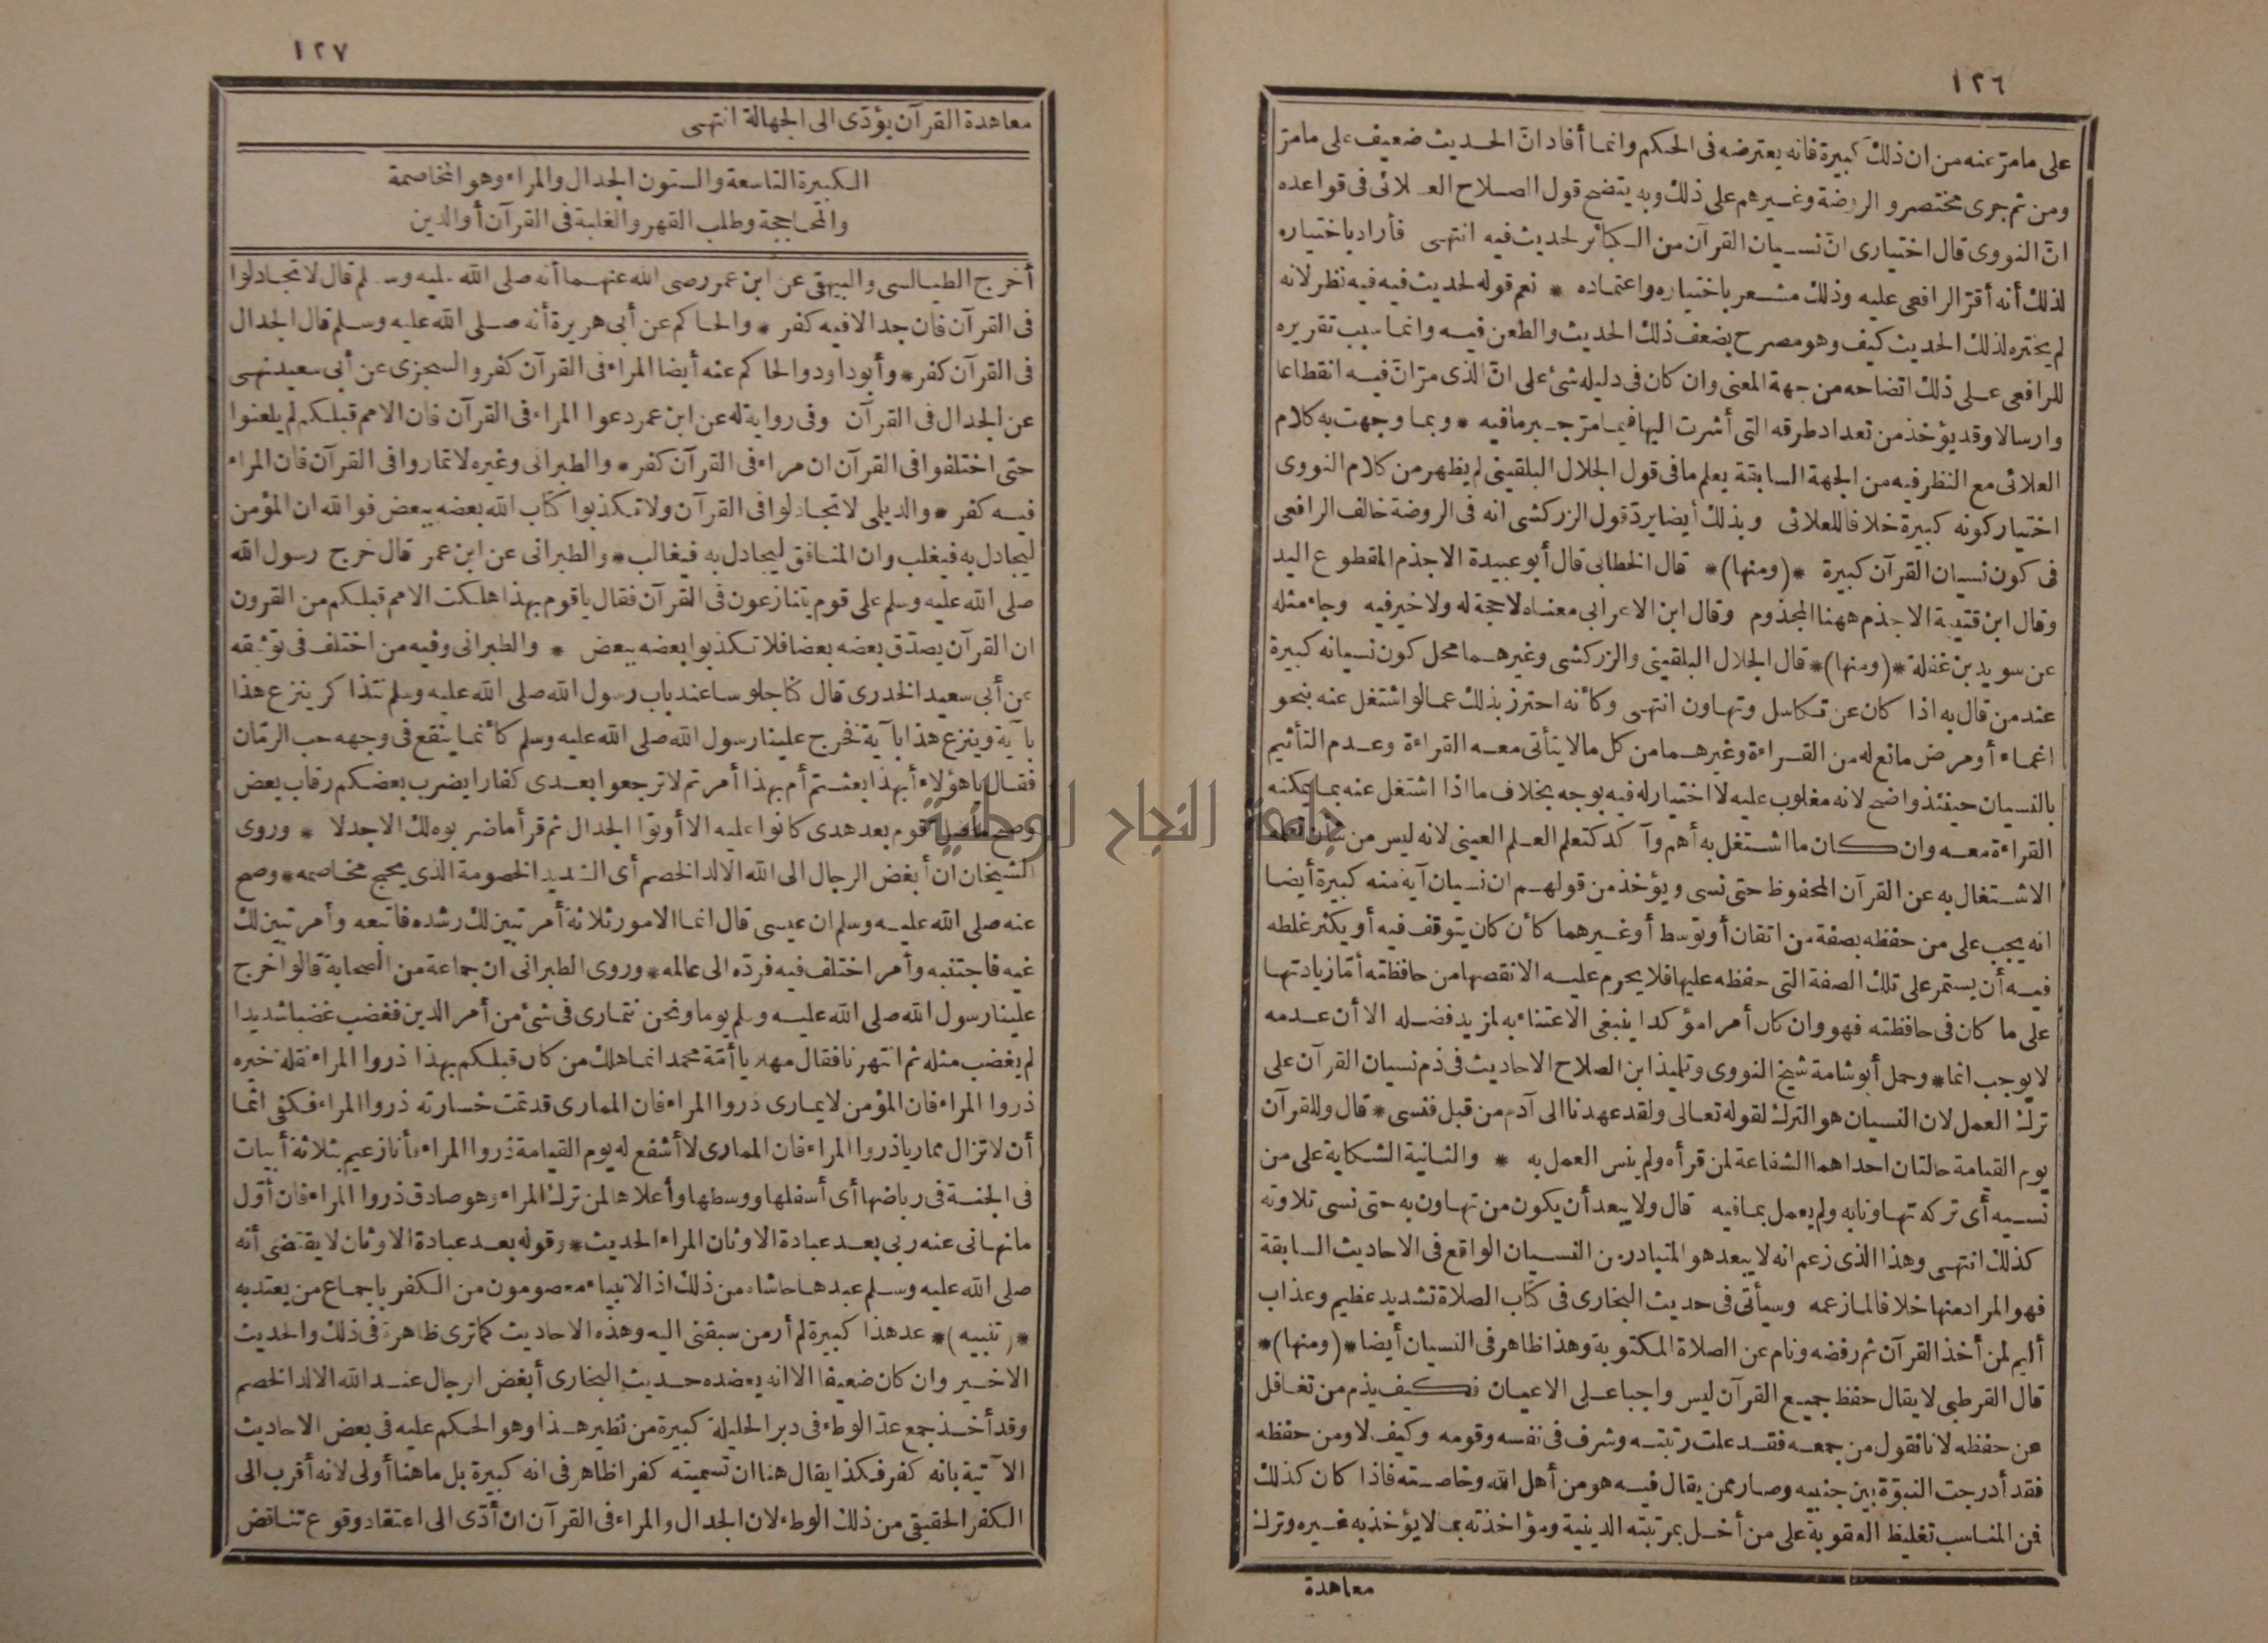 ١٢٦
على مامرّ عنه من ان ذلك كبيرة فانه يعترضه فى الحكم وانما أفاد انّ الحديث ضعيف على مامرّ
ومن ثم جرى مختصرو الروضة وغيرهم على ذلك وبه يتضح قول الصلاح العلائى فى قواعده
انّ النووى قال اختيارى انّ نسيان القرآن من الكبائر لحديث فيه انتهى فأراد باختياره
لذلك أنه أقرّ الرافعى عليه وذلك مشعر باختياره واعتماده * نعم قوله لحديث فيه فيه نظر لانه
لم يختره لذلك الحديث كيف وهو مصرح بضعف ذلك الحديث والطعن فيه وانما سبب تقريره
للرافعى على ذلك اتضاحه من جهة المعنى وان كان فى دليله شئ على انّ الذى مرّ انّ فيه انقطاعا
وارسالا وقد يؤخذ من تعداد طرقه التى أشرت اليها فيما مرّ جبر ما فيه * وبما وجهت به كلام
العلائى مع النظر فيه من الجهة السابقة يعلم ما فى قول الجلال البلقينى لم يظهر من كلام النووى
اختيار كونه كبيرة خلافا للعلائى وبذلك أيضا يردّ قول الزركشى انه فى الروضة خالف الرافعى
فى كون نسيان القرآن كبيرة *(ومنها)* قال الخطابى قال أبو عبيدة الاجذم المقطوع اليد
وقال ابن قتيبة الاجذم ههنا المجذوم وقال ابن الاعرابى معناه لاحجة له ولا خير فيه وجاء مثله
عن سويد بن غفلة *(ومنها)* قال الجلال البلقينى والزركشى وغيرهما محل كون نسيانه كبيرة
عند من قال به اذا كان عن تكاسل وتهاون انتهى وكأنه احترز بذلك عمالو اشتغل عنه بنحو
اغماء أو مرض مانع له من القراءة وغيرهما من كل ما لا يتأتى معه القراءة وعدم التأثيم
بالنسيان حينئذ واضح لانه مغلوب عليه لا اختيار له فيه بوجه بخلاف ما اذا اشتغل عنه بما يمكنه
القراءة معه وان كان ما اشتغل به أهم وآكد كتعلم العلم العينى لانه ليس من شأن تعلمه
الاشتغال به عن القرآن المحفوظ حتى نسى ويؤخذ من قولهم ان نسيان آية منه كبيرة أيضا
انه يجب على من حفظه بصفة من اتقان أو توسط أو غيرهما كأن كان يتوقف فيه أو يكثر غلطه
فيه أن يستمر على تلك الصفة التى حفظه عليها فلا يحرم عليه الا نقصها من حافظته أمّا زيادتها
على ما كان فى حافظته فهو وان كان أمرا مؤكدا ينبغى الاعتناء به لمزيد فضله الا أن عدمه
لا يوجب اثما * وحمل أبو شامة شيخ النووى وتلميذ ابن الصلاح الاحاديث فى ذم نسيان القرآن على
ترك العمل لان النسيان هو الترك لقوله تعالى ولقد عهدنا الى آدم من قبل فنسى * قال وللقرآن
يوم القيامة حالتان احداهما الشفاعة لمن قرأه ولم ينس العمل به * والثانية الشكاية على من
نسيه أى تركه تهاونا به ولم يعمل بما فيه قال ولا يبعد أن يكون من تهاون به حتى نسى تلاوته
كذلك انتهى وهذا الذى زعم انه لا يبعد هو المتبادر من النسيان الواقع فى الاحاديث السابقة
فهو المراد منها خلافا لما زعمه وسيأتى فى حديث البخارى فى كتاب الصلاة تشديد عظيم وعذاب
أليم لمن أخذ القرآن ثم رفضه ونام عن الصلاة المكتوبة وهذا ظاهر فى النسيان أيضا *(ومنها)*
قال القرطبى لا يقال حفظ جميع القرآن ليس واجبا على الاعيان فكيف يذم من تغافل
عن حفظه لانا نقول من جمعه فقد علت رتبته وشرف فى نفسه وقومه وكيف لا ومن حفظه
فقد أدرجت النبوّة بين جنبيه وصار ممن يقال فيه هو من أهل الله وخاصته فاذا كان كذلك
فمن المناسب تغليظ العقوبة على من أخل بمرتبته الدينية ومؤاخذته بما لا يؤخذ به غيره وترك
معاهدة
١٢٧
معاهدة القرآن يؤدّى الى الجهالة انتهى
الكبيرة التاسعة والستون الجدال والمراء وهو المخاصمة
والمحاججة وطلب القهر والغلبة فى القرآن أو الدين
أخرج الطيالسى والبيهقى عن ابن عمر رضى الله عنهما أنه صلى الله عليه وسلم قال لا تجادلوا
فى القرآن فان جدالا فيه كفر * والحاكم عن أبى هريرة أنه صلى الله عليه وسلم قال الجدال
فى القرآن كفر * وأبو داود والحاكم عنه أيضا المراء فى القرآن كفر والسجزى عن أبى سعيد نهى
عن الجدال فى القرآن وفى رواية له عن ابن عمر دعوا المراء فى القرآن فان الامم قبلكم لم يلعنوا
حتى اختلفوا فى القرآن ان مراء فى القرآن كفر * والطبرانى وغيره لا تماروا فى القرآن فان المراء
فيه كفر * والديلمى لا تجادلوا فى القرآن ولا تكذبوا كتاب الله بعضه ببعض فوالله ان المؤمن
ليجادل به فيغلب وان المنافق ليجادل به فيغالب * والطبرانى عن ابن عمر قال خرج رسول الله
صلى الله عليه وسلم على قوم يتنازعون فى القرآن فقال ياقوم بهذا هلكت الامم قبلكم من القرون
ان القرآن يصدّق بعضه بعضا فلا تكذبوا بعضه ببعض * والطبرانى وفيه من اختلف فى توثيقه
عن أبى سعيد الخدرى قال كنا جلوسا عند باب رسول الله صلى الله عليه وسلم نتذاكر ينزع هذا
بآية وينزع هذا بآية فخرج علينا رسول الله صلى الله عليه وسلم كأنما ينقع فى وجهه حب الرمّان
فقال ياهؤلاء أبهذا بعثتم أم بهذا أمرتم لا ترجعوا بعدى كفارا يضرب بعضكم رقاب بعض
وصح ماضل قوم بعد هدى كانوا عليه الا أوتوا الجدال ثم قرأ ماضربوه لك الا جدلا * وروى
الشيخان ان أبغض الرجال الى الله الالد الخصم أى الشديد الخصومة الذى يحج مخاصمه * وصح
عنه صلى الله عليه وسلم ان عيسى قال انما الامور ثلاثة أمر تبين لك رشده فاتبعه وأمر تبين لك
غيه فاجتنبه وأمر اختلف فيه فردّه الى عالمه * وروى الطبرانى ان جماعة من الصحابة قالوا خرج
علينا رسول الله صلى الله عليه وسلم يوما ونحن نتمارى فى شئ من أمر الدين فغضب غضبا شديدا
لم يغضب مثله ثم انتهرنا فقال مهلا يا أمّة محمد انما هلك من كان قبلكم بهذا ذروا المراء لقلة خيره
ذروا المراء فان المؤمن لا يمارى ذروا المراء فان الممارى قد تمت خسارته ذروا المراء فكفى اثما
أن لا تزال مماريا ذروا المراء فان الممارى لا أشفع له يوم القيامة ذروا المراء فأنا زعيم بثلاثة أبيات
فى الجنة فى رباضها أى أسفلها ووسطها وأعلاها لمن ترك المراء وهو صادق ذروا المراء فان أوّل
ما نهانى عنه ربى بعد عبادة الاوثان المراء الحديث * وقوله بعد عبادة الاوثان لا يقتضى أنه
صلى الله عليه وسلم عبدها حاشاه من ذلك اذ الانبياء معصومون من الكفر باجماع من يعتد به
*(تنبيه)* عد هذا كبيرة لم أر من سبقنى اليه وهذه الاحاديث كما ترى ظاهرة فى ذلك والحديث
الاخير وان كان ضعيفا الا انه يعضده حديث البخارى أبغض الرجال عند الله الالد الخصم
وقد أخذ جمع عدّ الوطء فى دبر الحليلة كبيرة من نظير هذا وهو الحكم عليه فى بعض الاحاديث
الآتية بانه كفر فكذا يقال هنا ان تسميته كفرا ظاهر فى انه كبيرة بل ما هنا أولى لانه أقرب الى
الكفر الحقيقى من ذلك الوطء لان الجدال والمراء فى القرآن ان أدّى الى اعتقاد وقوع تناقض
جامعة النجاح الوطنية